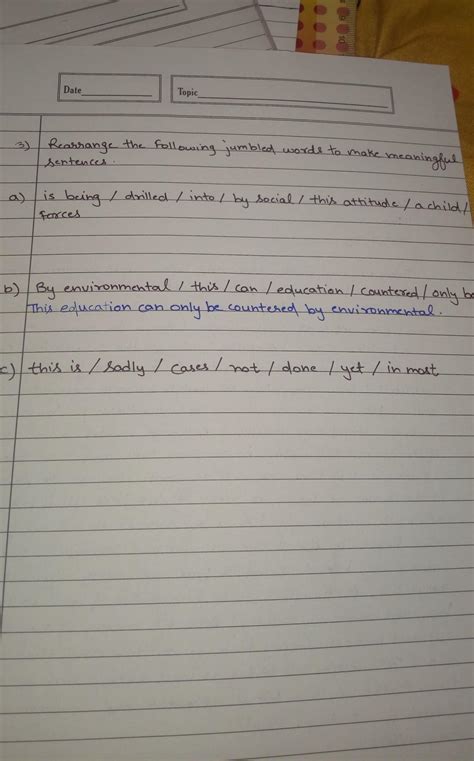 Date
Topic
3) Rearrange the following jumbled words to make meaningful
sentences.
a) is being / drilled / into / by social / this attitude / a child /
forces
b) By environmental / this / can / education / countered / only be
This education can only be countered by environmental.
c) this is / sadly / cases / not / done / yet / in most